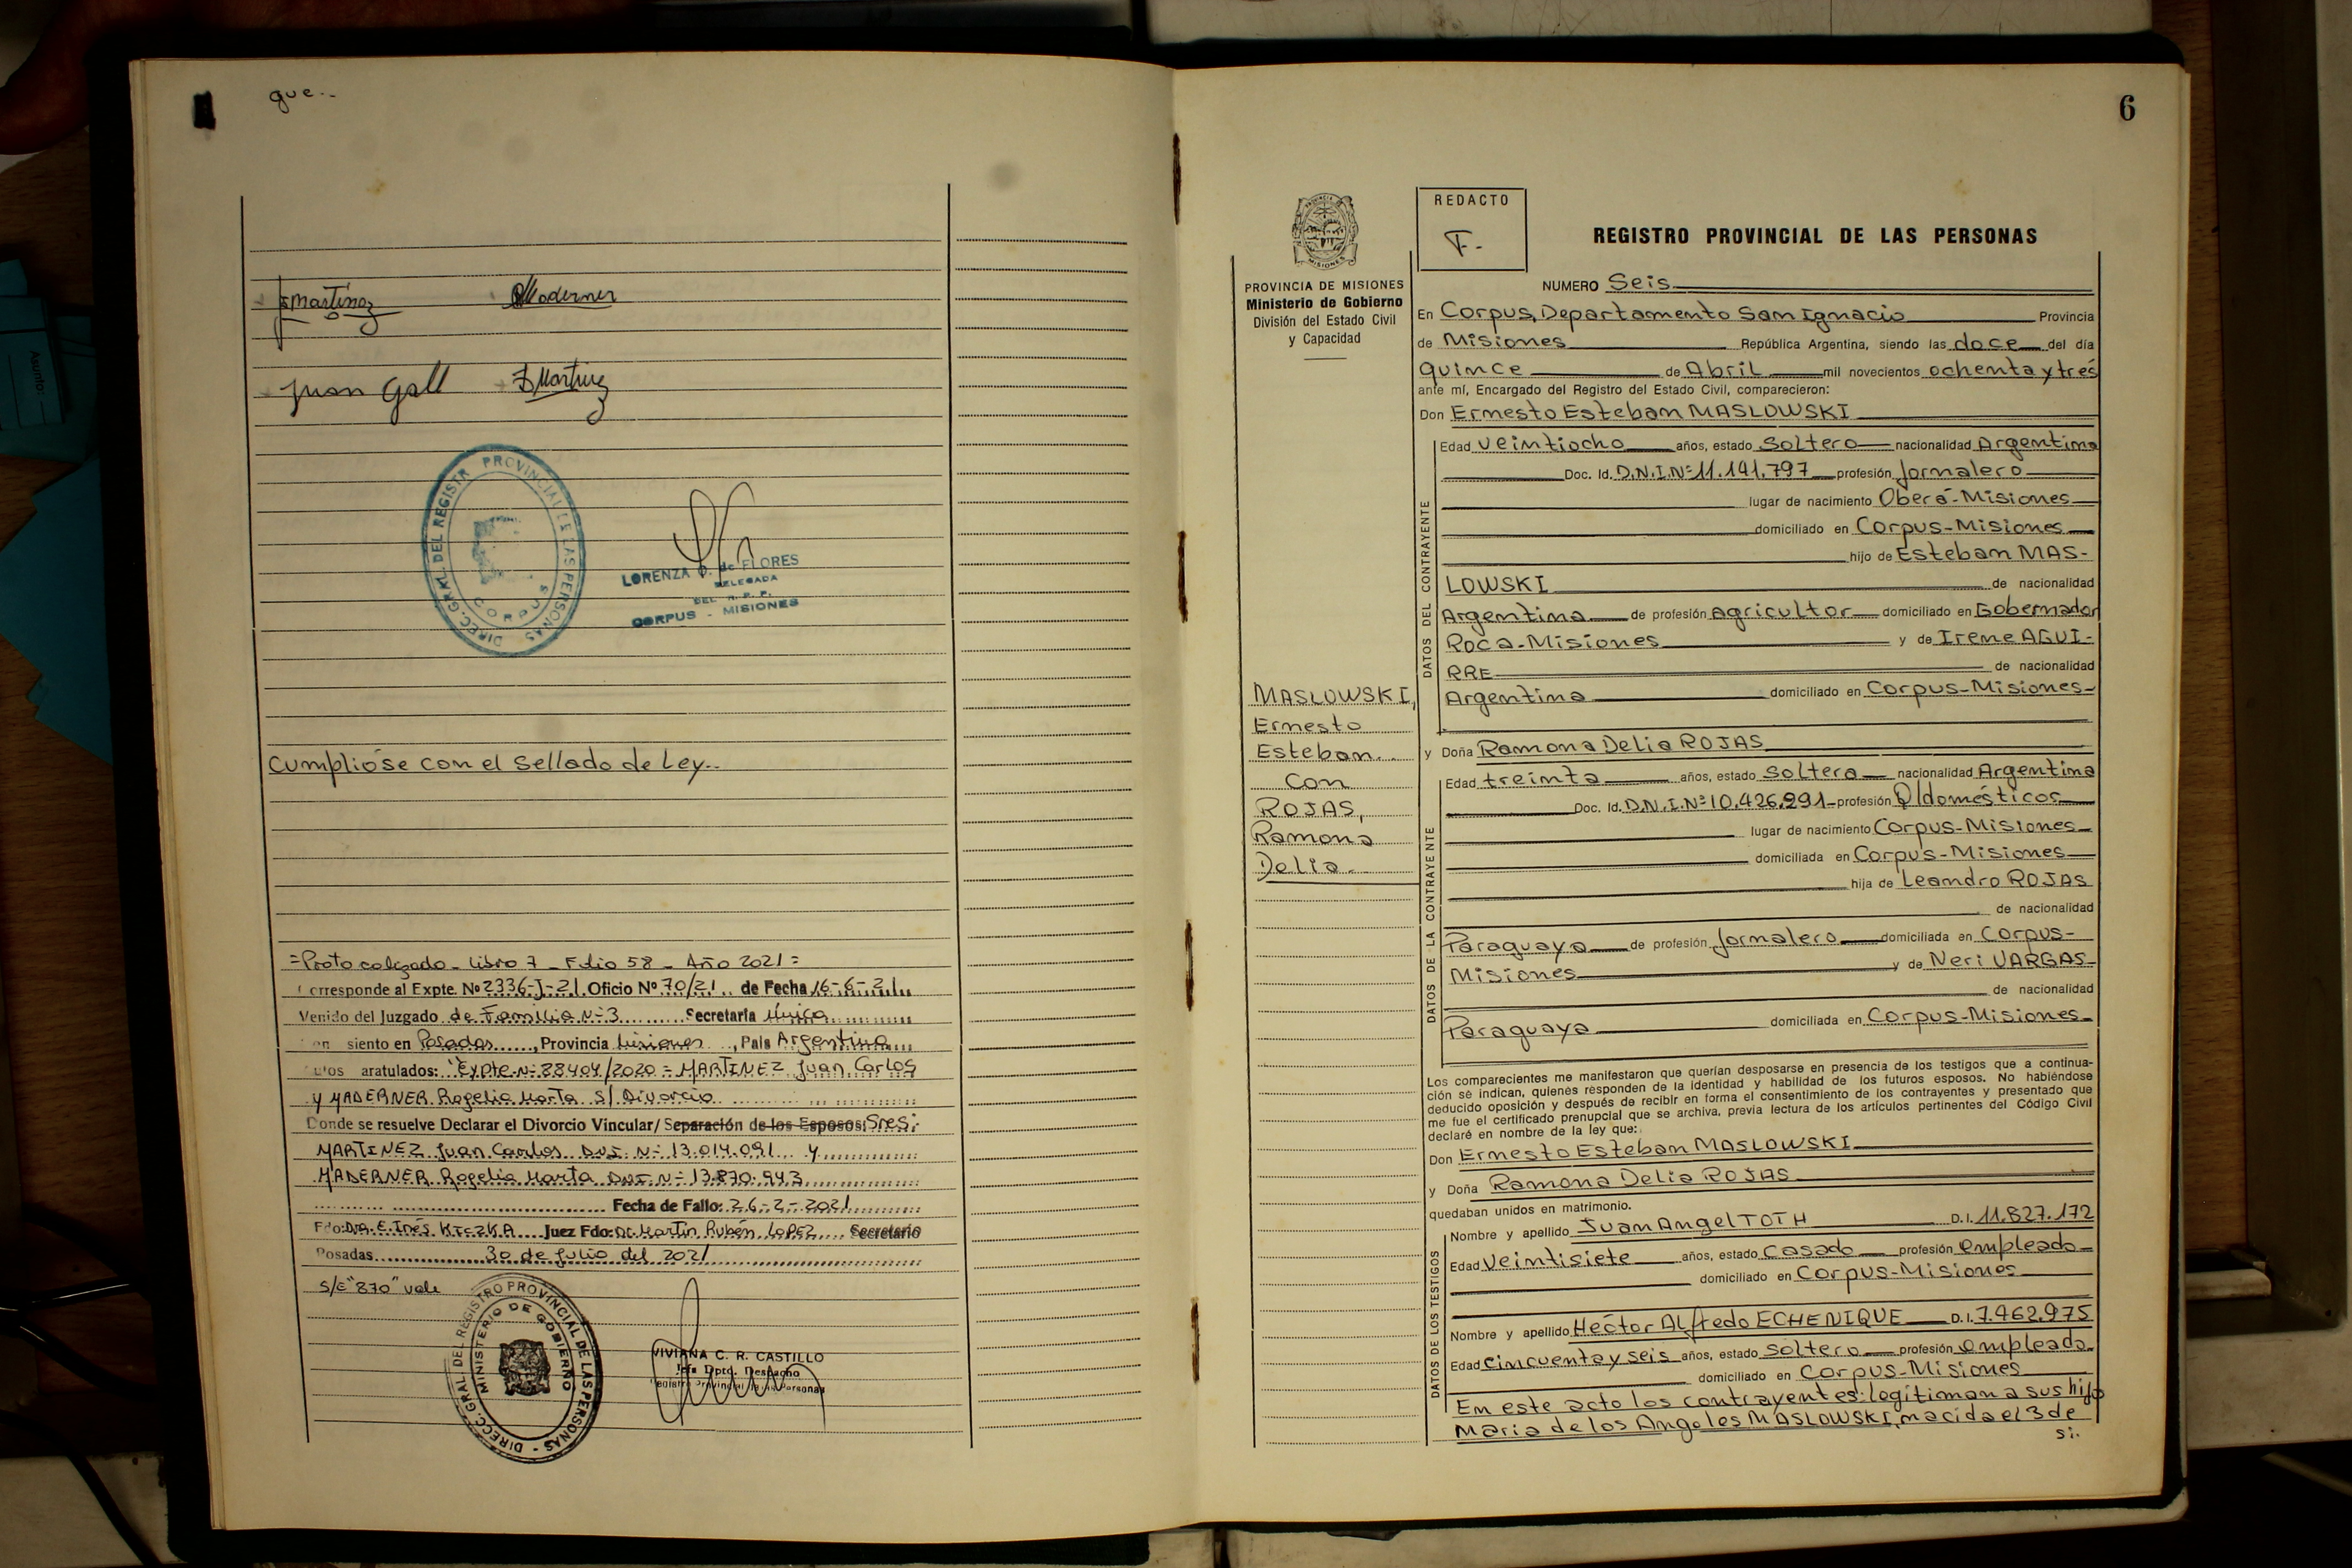 gue..
Martinez Maderner
Juan Gall Martinez
DIREC. GRAL. DEL REGISTR PROVINCIAL DE LAS PERSONAS
CORPUS
LORENZA de FLORES
DELEGADA
DEL R. P. P.
CORPUS - MISIONES
Cumplióse con el Sellado de Ley..
=Protocolizado - Libro 7 - Folio 58 - Año 2021=
Corresponde al Expte. Nº 2336-J-21. Oficio Nº 70/21.. de Fecha 16-6-21
Venido del Juzgado de Familia Nº 3 Secretaría Única
siento en Posadas, Provincia Misiones, País Argentina
aratulados: "Expte Nº 88404/2020 = MARTINEZ Juan Carlos
y MADERNER Rogelia Marta S/ Divorcio
Donde se resuelve Declarar el Divorcio Vincular/ Separación de los Esposos: Sres:
MARTINEZ Juan Carlos DNI. Nº 13.014.091 y
MADERNER Rogelia Marta DNI. Nº 13.870.943
Fecha de Fallo: 26-2-2021
Fdo: Dra. E. Inés KICZKA Juez Fdo: Dr. Martín Rubén LOPEZ Secretario
Posadas 30 de Julio del 2021
S/E "870" vale
DIREC. GRAL. DEL REGISTRO PROVINCIAL DE LAS PERSONAS
MINISTERIO DE GOBIERNO
VIVIANA C. R. CASTILLO
Jefa Dpto. Despacho
Registro Provincial de las Personas
6
PROVINCIA DE MISIONES
Ministerio de Gobierno
División del Estado Civil
y Capacidad
REDACTO
F.-
REGISTRO PROVINCIAL DE LAS PERSONAS
NUMERO Seis
En Corpus, Departamento San Ignacio Provincia
de Misiones República Argentina, siendo las doce del día
quince de Abril mil novecientos ochenta y tres
ante mí, Encargado del Registro del Estado Civil, comparecieron:
Don Ernesto Esteban MASLOWSKI
DATOS DEL CONTRAYENTE
Edad veintiocho años, estado soltero nacionalidad Argentina
Doc. Id. D.N.I.Nº 11.141.797 profesión Jornalero
lugar de nacimiento Oberá-Misiones
domiciliado en Corpus-Misiones
hijo de Esteban MAS-
LOWSKI de nacionalidad
Argentina de profesión agricultor domiciliado en Gobernador
Roca-Misiones y de Irene AGUI-
RRE de nacionalidad
Argentina domiciliado en Corpus-Misiones-
MASLOWSKI,
Ernesto
Esteban..
con
ROJAS,
Ramona
Delia.
y Doña Ramona Delia ROJAS
DATOS DE LA CONTRAYENTE
Edad treinta años, estado soltera nacionalidad Argentina
Doc. Id. D.N.I.Nº 10.426.291 profesión Q/domésticos
lugar de nacimiento Corpus-Misiones
domiciliada en Corpus-Misiones
hija de Leandro ROJAS
de nacionalidad
Paraguaya de profesión Jornalero domiciliada en Corpus-
Misiones y de Neri VARGAS
de nacionalidad
Paraguaya domiciliada en Corpus-Misiones
Los comparecientes me manifestaron que querían desposarse en presencia de los testigos que a continua-
ción se indican, quienes responden de la identidad y habilidad de los futuros esposos. No habiéndose
deducido oposición y después de recibir en forma el consentimiento de los contrayentes y presentado que
me fue el certificado prenupcial que se archiva, previa lectura de los artículos pertinentes del Código Civil
declaré en nombre de la ley que:
Don Ernesto Esteban MASLOWSKI
y Doña Ramona Delia ROJAS
quedaban unidos en matrimonio.
DATOS DE LOS TESTIGOS
Nombre y apellido Juan Angel TOTH D.I. 11.827.172
Edad veintisiete años, estado casado profesión empleado
domiciliado en Corpus-Misiones
Nombre y apellido Héctor Alfredo ECHENIQUE D.I. 7.462.975
Edad cincuenta y seis años, estado soltero profesión empleado
domiciliado en Corpus-Misiones
En este acto los contrayentes: legitiman a sus hijos
María de los Angeles MASLOWSKI, nacida el 3 de
si.
Asunto: